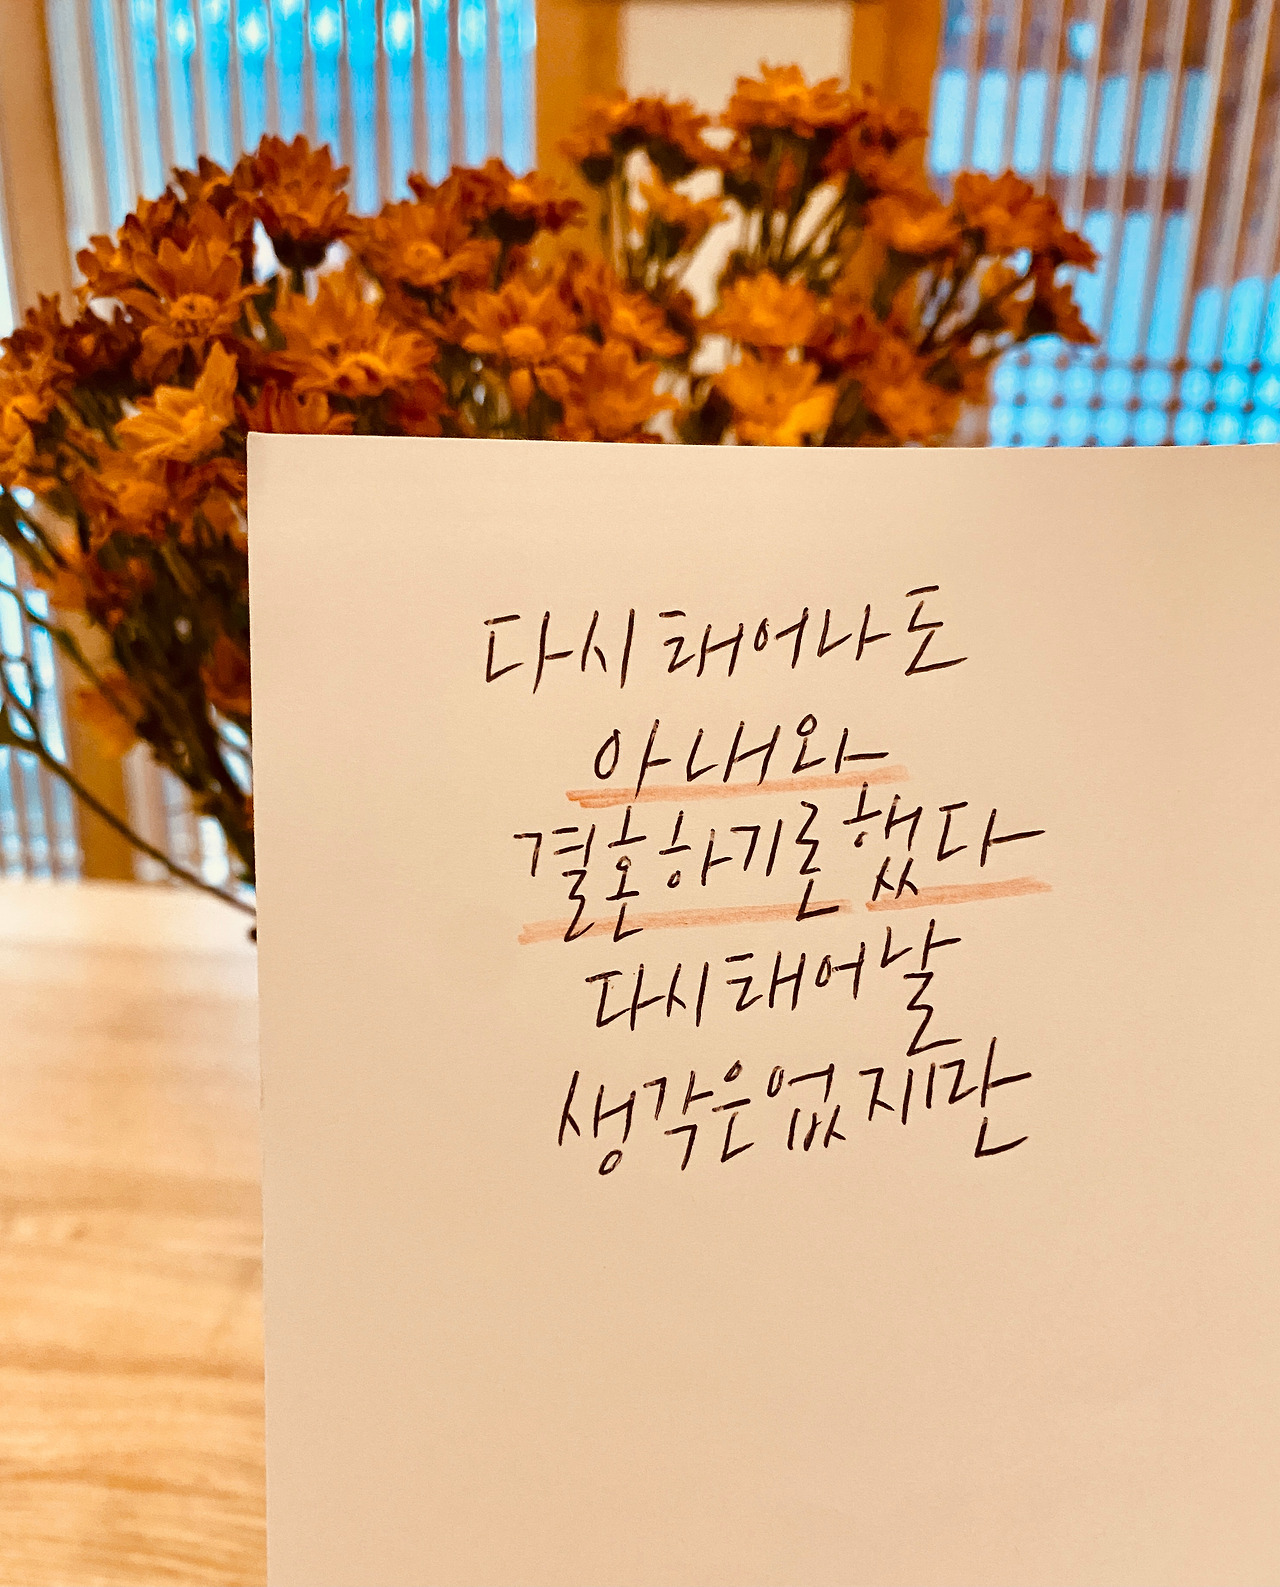 다시 태어나도
아내와
결혼하기론 했다
다시 태어날
생각은 없지만